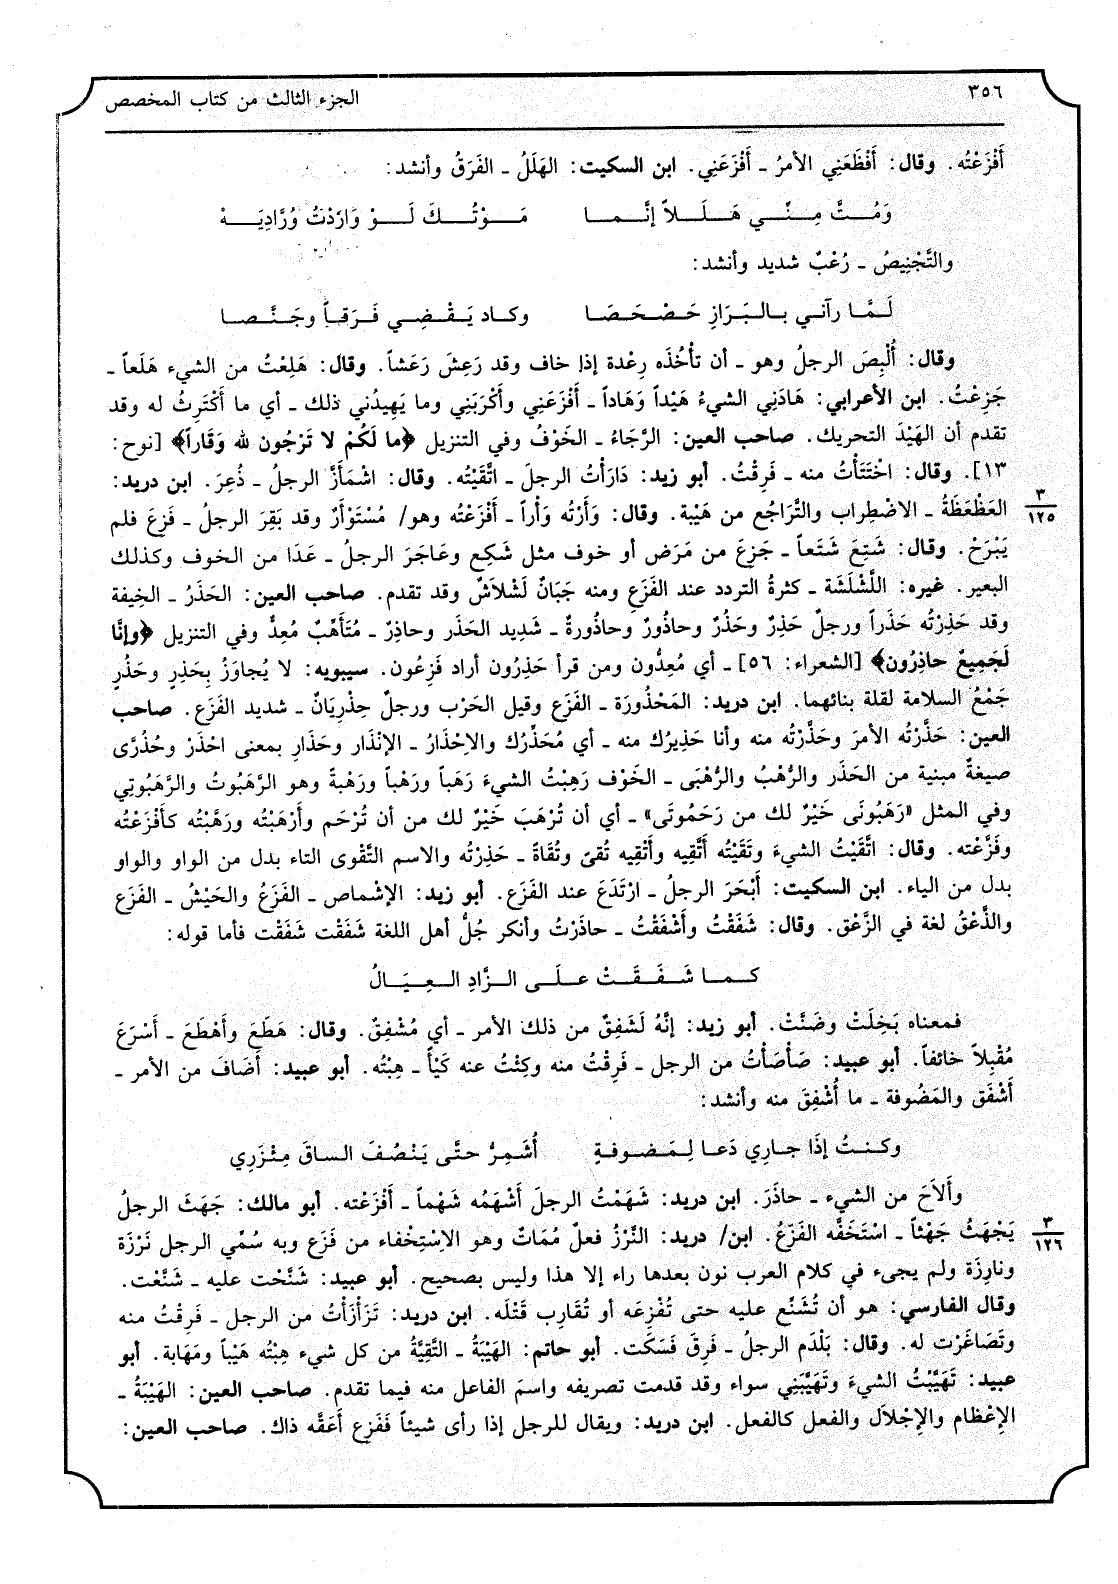 ٣٥٦
الجزء الثالث من كتاب المخصص
أَفْزَعْتُه. وقال: أَفْظَعَنِي الأمرُ ـ أَفْزَعَنِي. ابن السكيت: الهَلَلُ ـ الفَرَقُ وأنشد:
وَمُتَّ مِنِّي هَلَلاً إنَّما مَوْتُكَ لَوْ وَارَدْتُ وُرَّادِيَهْ
والتَّجْنِيصُ ـ رُعْبٌ شديد وأنشد:
لَمَّا رآني بالبَرَازِ حَصْحَصَا وكاد يَقْضِي فَرَقاً وجَنَّصا
وقال: أُلْبِصَ الرجلُ وهو ـ أن تأخُذَه رِعْدة إذا خاف وقد رَعِشَ رَعَشاً. وقال: هَلِعْتُ من الشيء هَلَعاً ـ
جَزِعْتُ. ابن الأعرابي: هَادَنِي الشيءُ هَيْداً وَهَاداً ـ أَفْزَعَنِي وأَكْرَبَنِي وما يَهِيدُني ذلك ـ أي ما أَكْتَرِثُ له وقد
تقدم أن الهَيْدَ التحريك. صاحب العين: الرَّجَاءُ ـ الخَوْفُ وفي التنزيل ﴿ما لَكُمْ لا تَرْجُون لله وَقَاراً﴾ [نوح:
١٣]. وقال: اخْتَتَأْتُ منه ـ فَرِقْتُ. أبو زيد: دَارَأْتُ الرجلَ ـ اتَّقَيْتُه. وقال: اشْمَأَزَّ الرجلُ ـ ذُعِرَ. ابن دريد:
٣
١٢٥
العَظْعَظَةُ ـ الاضْطِراب والتَّرَاجُع من هَيْبة. وقال: وَأَرْتُه وَأْراً ـ أَفْزَعْتُه وهو/ مُسْتَوْأَرٌ وقد بَقِرَ الرجلُ ـ فَزِعَ فلم
يَبْرَحْ. وقال: شَتِعَ شَتَعاً ـ جَزِعَ من مَرَض أو خوف مثل شَكِع وعَاجَرَ الرجلُ ـ عَدَا من الخوف وكذلك
البعير. غيره: اللَّشْلَشَة ـ كثرةُ التردد عند الفَزَعِ ومنه جَبَانٌ لَشْلاَشٌ وقد تقدم. صاحب العين: الحَذَرُ ـ الخِيفة
وقد حَذِرْتُه حَذَراً ورجلٌ حَذِرٌ وحَذُرٌ وحاذُورٌ وحاذُورةٌ ـ شَدِيد الحَذَر وحاذِرٌ ـ مُتَأَهِّبٌ مُعِدٌّ وفي التنزيل ﴿وإنَّا
لَجَمِيعٌ حاذِرُون﴾ [الشعراء: ٥٦] ـ أي مُعِدُّون ومن قرأ حَذِرُون أراد فَزِعُون. سيبويه: لا يُجاوَزُ بِحَذِرٍ وحَذُرٍ
جَمْعُ السلامة لقلة بنائهما. ابن دريد: المَحْذُورَة ـ الفَزَع وقيل الحَرْب ورجلٌ حِذْرِيَانٌ ـ شديد الفَزَع. صاحب
العين: حَذَّرْتُه الأمرَ وحَذَّرْتُه منه وأنا حَذِيرُك منه ـ أي مُحَذِّرُك والاِحْذَارُ ـ الإِنْذَار وحَذَارِ بمعنى احْذَرْ وحُذُرَّى
صيغةٌ مبنية من الحَذَر والرُّهْبُ والرُّهْبَى ـ الخَوْف رَهِبْتُ الشيءَ رَهَباً ورَهْباً ورَهْبةً وهو الرَّهَبُوت والرَّهَبُوتِي
وفي المثل «رَهَبُوتَى خَيْرٌ لك من رَحَمُوتَى» ـ أي أن تُرْهَبَ خَيْرٌ لك من أن تُرْحَم وأَرْهَبْتُه ورَهَّبْتُه كأَفْزَعْتُه
وفَزَّعْتُه. وقال: اتَّقَيْتُ الشيءَ وتَقَيْتُه أَتَّقِيه وأَتْقِيه تُقىً وتُقَاةً ـ حَذِرْتُه والاسم التَّقْوى التاء بدل من الواو والواو
بدل من الياء. ابن السكيت: أَبْحَرَ الرجلُ ـ ارْتَدَعَ عند الفَزَع. أبو زيد: الإِشْماص ـ الفَزَعُ والحَيْشُ ـ الفَزَع
والذَّعْقُ لغة في الزَّعْق. وقال: شَفَقْتُ وأَشْفَقْتُ ـ حاذَرْتُ وأنكر جُلُّ أهل اللغة شَفَقْت شَفَقْت فأما قوله:
كما شَفَقَتْ عَلَى الزَّادِ العِيَالُ
فمعناه بَخِلَتْ وضَنَّتْ. أبو زيد: إنَّهُ لَشَفِقٌ من ذلك الأمر ـ أي مُشْفِقٌ. وقال: هَطَعَ وأَهْطَعَ ـ أَسْرَعَ
مُقْبِلاً خائفاً. أبو عبيد: صَأْصَأْتُ من الرجل ـ فَرِقْتُ منه وكِئْتُ عنه كَيْأً ـ هِبْتُه. أبو عبيد: أَضَافَ من الأمر ـ
أَشْفَق والمَضُوفة ـ ما أُشْفِقَ منه وأنشد:
وكنتُ إذَا جارِي دَعا لِمَضُوفةٍ أُشَمِرُّ حتَّى يَنْصُفَ الساقَ مِئْزَرِي
وأَلاَحَ من الشيء ـ حاذَرَ. ابن دريد: شَهَمْتُ الرجلَ أَشْهَمُه شَهْماً ـ أَفْزَعْته. أبو مالك: جَهَثَ الرجلُ
٣
١٢٦
يَجْهَثُ جَهْثاً ـ اسْتَخَفَّه الفَزَعُ. ابن/ دريد: النَّرْزُ فعلٌ مُمَاتٌ وهو الاِسْتِخْفاء من فَزَع وبه سُمِّي الرجل نَرْزَة
ونارِزَة ولم يجىء في كلام العرب نون بعدها راء إلا هذا وليس بصحيح. أبو عبيد: شَنَّحْت عليه ـ شَنَّعْت.
وقال الفارسي: هو أن تُشَنِّع عليه حتى تُفْزِعَه أو تُقَارِب قَتْلَه. ابن دريد: تَزَأْزَأْتُ من الرجل ـ فَرِقْتُ منه
وتَصَاغَرْت له. وقال: بَلْدَم الرجلُ ـ فَرِقَ فَسَكَت. أبو حاتم: الهَيْبَةُ ـ التَّقِيَّةُ من كل شيء هِبْتُه هَيْباً ومَهَابة. أبو
عبيد: تَهَيَّبْتُ الشيءَ وتَهَيَّبَنِي سواء وقد قدمت تصريفه واسمَ الفاعل منه فيما تقدم. صاحب العين: الهَيْبَةُ ـ
الإِعْظام والإِجْلاَل والفعل كالفعل. ابن دريد: ويقال للرجل إذا رأى شيئاً فَفَزِع أَعَقَّه ذاك. صاحب العين: